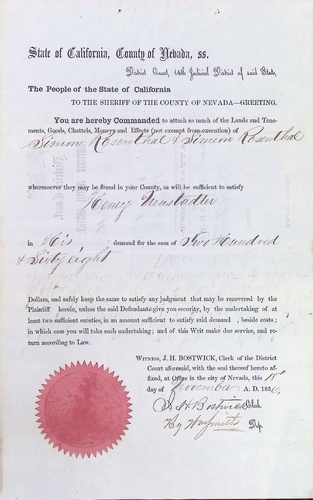 State of California, County of Nevada, ss.
District Court, 14th Judicial District of said State,
The People of the State of California
TO THE SHERIFF OF THE COUNTY OF NEVADA—GREETING.
You are hereby Commanded to attach so much of the Lands and Tene-
ments, Goods, Chattels, Moneys and Effects (not exempt from execution) of
Simone Rosenthal & Simeon Rosenthal
wheresoever they may be found in your County, as will be sufficient to satisfy
Henry Neustadter
in His demand for the sum of Two Hundred
& Sixty eight
Dollars, and safely keep the same to satisfy any judgment that may be recovered by the
Plaintiff herein, unless the said Defendants give you security, by the undertaking of at
least two sufficient sureties, in an amount sufficient to satisfy said demand, besides costs;
in which case you will take such undertaking; and of this Writ make due service, and re-
turn according to Law.
WITNESS, J. H. BOSTWICK, Clerk of the District
Court aforesaid, with the seal thereof hereto af-
fixed, at Office in the city of Nevada, this 18th
day of November A. D. 1856
J. H. Bostwick Clerk
By Dep.